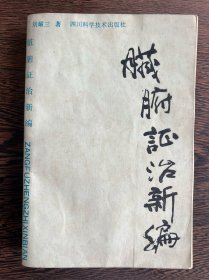 刘耀三 著 四川科学技术出版社
脏腑证治新编
ZANGFUZHENGZHIXINBIAN
臟腑証治新編